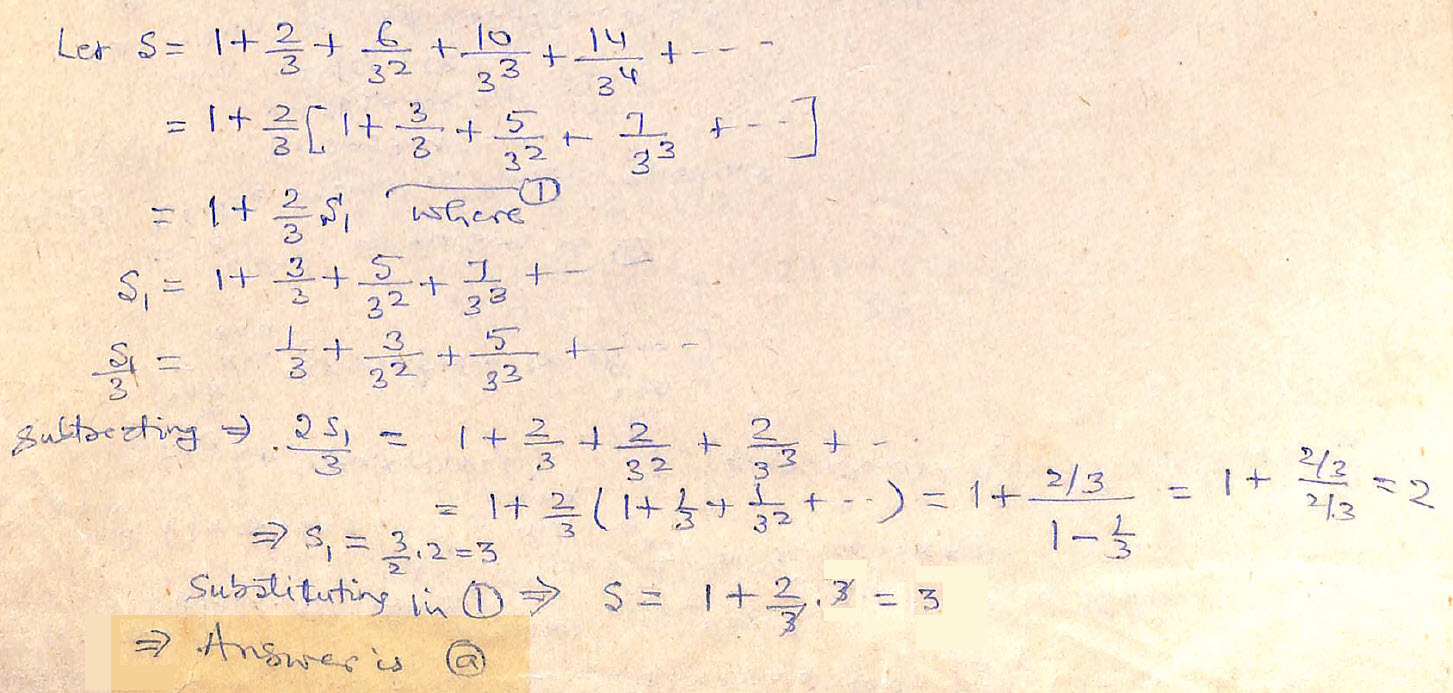 Let S = 1 + 2/3 + 6/3² + 10/3³ + 14/3⁴ + ---
= 1 + 2/3 [ 1 + 3/3 + 5/3² + 7/3³ + --- ]
= 1 + 2/3 S₁ where ①
S₁ = 1 + 3/3 + 5/3² + 7/3³ + ---
S₁/3 = 1/3 + 3/3² + 5/3³ + ---
Subtracting ⇒ 2S₁/3 = 1 + 2/3 + 2/3² + 2/3³ + --
= 1 + 2/3 ( 1 + 1/3 + 1/3² + --- ) = 1 + (2/3)/(1 - 1/3) = 1 + (2/3)/(2/3) = 2
⇒ S₁ = 3/2 . 2 = 3
Substituting in ① ⇒ S = 1 + 2/3 . 3 = 3
⇒ Answer is ⓐ